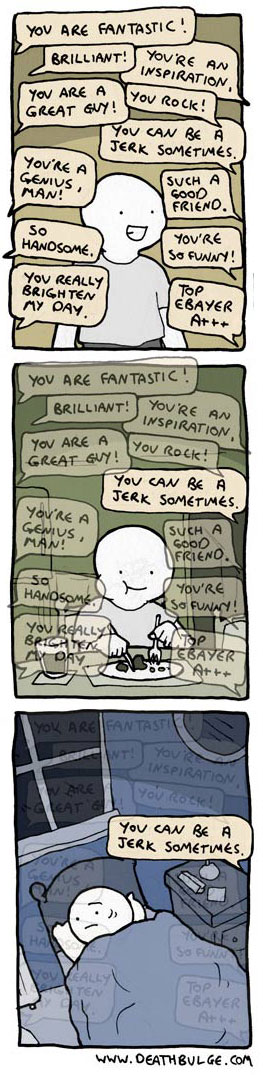 YOU ARE FANTASTIC!
BRILLIANT!
YOU'RE AN
INSPIRATION.
YOU ARE A
GREAT GUY!
YOU ROCK!
YOU CAN BE A
JERK SOMETIMES.
YOU'RE A
GENIUS,
MAN!
SUCH A
GOOD
FRIEND.
SO
HANDSOME.
YOU'RE
SO FUNNY!
YOU REALLY
BRIGHTEN
MY DAY.
TOP
EBAYER
A+++
YOU ARE FANTASTIC!
BRILLIANT!
YOU'RE AN
INSPIRATION.
YOU ARE A
GREAT GUY!
YOU ROCK!
YOU CAN BE A
JERK SOMETIMES.
YOU'RE A
GENIUS,
MAN!
SUCH A
GOOD
FRIEND.
SO
HANDSOME.
YOU'RE
SO FUNNY!
YOU REALLY
BRIGHTEN
MY DAY.
TOP
EBAYER
A+++
YOU ARE FANTASTIC!
BRILLIANT!
YOU'RE AN
INSPIRATION.
YOU ARE A
GREAT GUY!
YOU ROCK!
YOU CAN BE A
JERK SOMETIMES.
YOU'RE A
GENIUS,
MAN!
SO
HANDSOME.
YOU'RE
SO FUNNY!
YOU REALLY
BRIGHTEN
MY DAY.
TOP
EBAYER
A+++
WWW.DEATHBULGE.COM